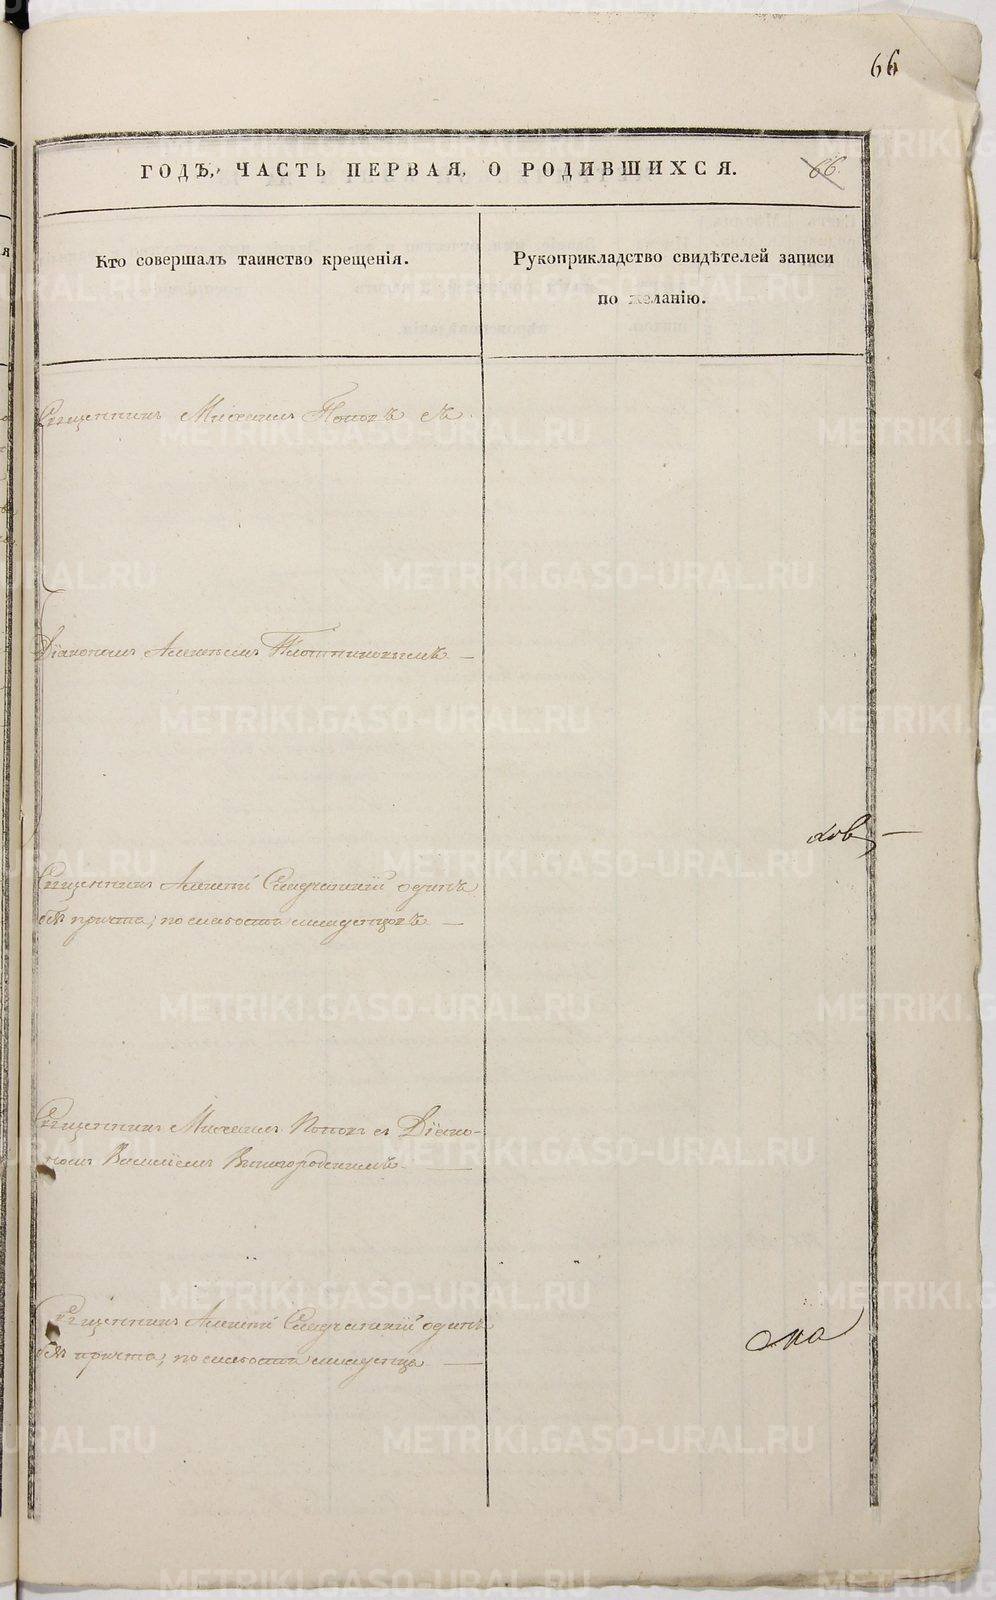 66
ГОДЪ, ЧАСТЬ ПЕРВАЯ, О РОДИВШИХСЯ.
66.
Кто совершалъ таинство крещенія.
Рукоприкладство свидѣтелей записи
по желанію.
Священникъ Михаилъ Поповъ съ
Діакономъ Алексѣемъ Плотниковымъ
Священникъ Алексѣй одинъ
безъ причта, по слабости младенцовъ
Священникъ Михаилъ Поповъ съ Діако-
номъ Василіемъ
Священникъ Алексѣй одинъ
безъ причта, по слабости младенца
METRIKI.GASO-URAL.RU